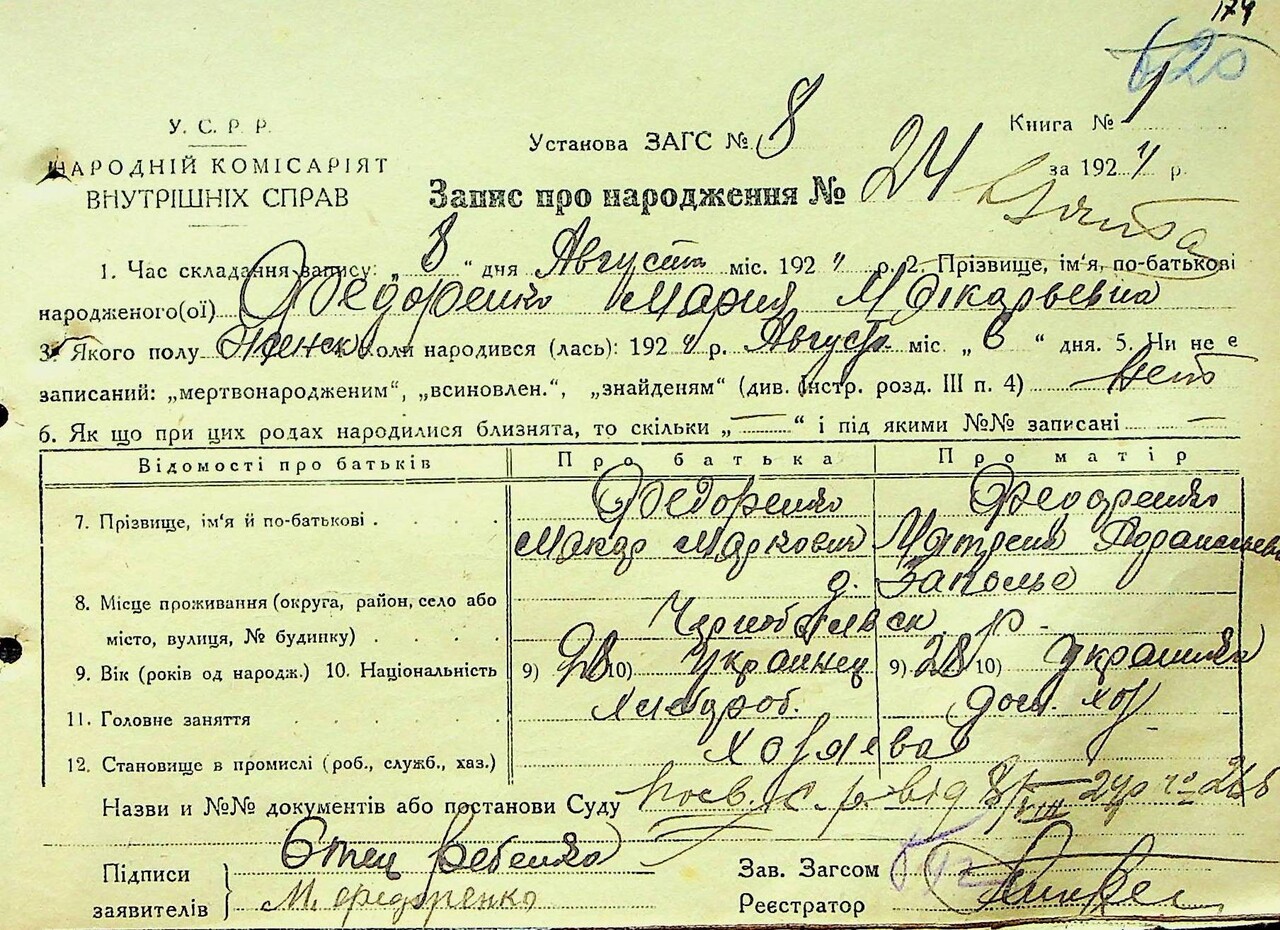 174
620
У. С. Р. Р.
НАРОДНІЙ КОМІСАРІЯТ
ВНУТРІШНІХ СПРАВ
Установа ЗАГС № 8
Книга № 1
за 1924 р.
Запис про народження № 24
1. Час складання запису: „ 8 “ дня Августа міс. 1924 р. 2. Прізвище, ім'я, по-батькові
народженого(ої) Федоренко Мария Макарьевна
3. Якого полу Женск Коли народився (лась): 1924 р. Август міс „ 6 “ дня. 5. Чи не є
записаний: „мертвонародженим“, „всиновлен.“, „знайденям“ (див. Інстр. розд. III п. 4) Нет
6. Як що при цих родах народилися близнята, то скільки „ — “ і під якими №№ записані —
Відомості про батьків Про батька Про матір
7. Прізвище, ім'я й по-батькові Федоренко Федоренко
Макар Маркович Матрена
д. Заполье
8. Місце проживання (округа, район, село або
місто, вулиця, № будинку) Чернобыльск. р.
9. Вік (років од народж.) 10. Національність 9) 28 10) Украинец 9) 28 10) Украинка
11. Головне заняття Хлебороб. Дом. хоз
12. Становище в промислі (роб., служб., хаз.) Хозяева
Назви и №№ документів або постанови Суду посв. с. р. від 8/VIII 24р. № 268
Підписи
заявителів
Отец ребенка
М. Федоренко
Зав. Загсом
Реєстратор